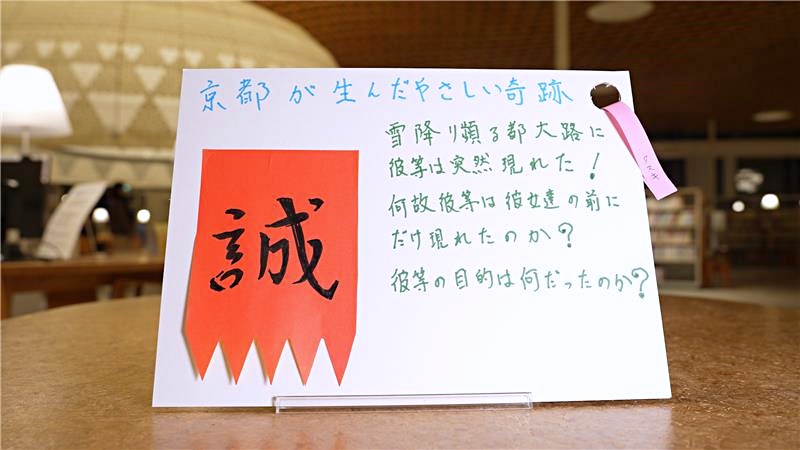 京都が生んだやさしい奇跡
雪降り頻る都大路に
彼等は突然現れた!
何故彼等は彼女達の前に
だけ現れたのか?
彼等の目的は何だったのか?
誠
アスキ